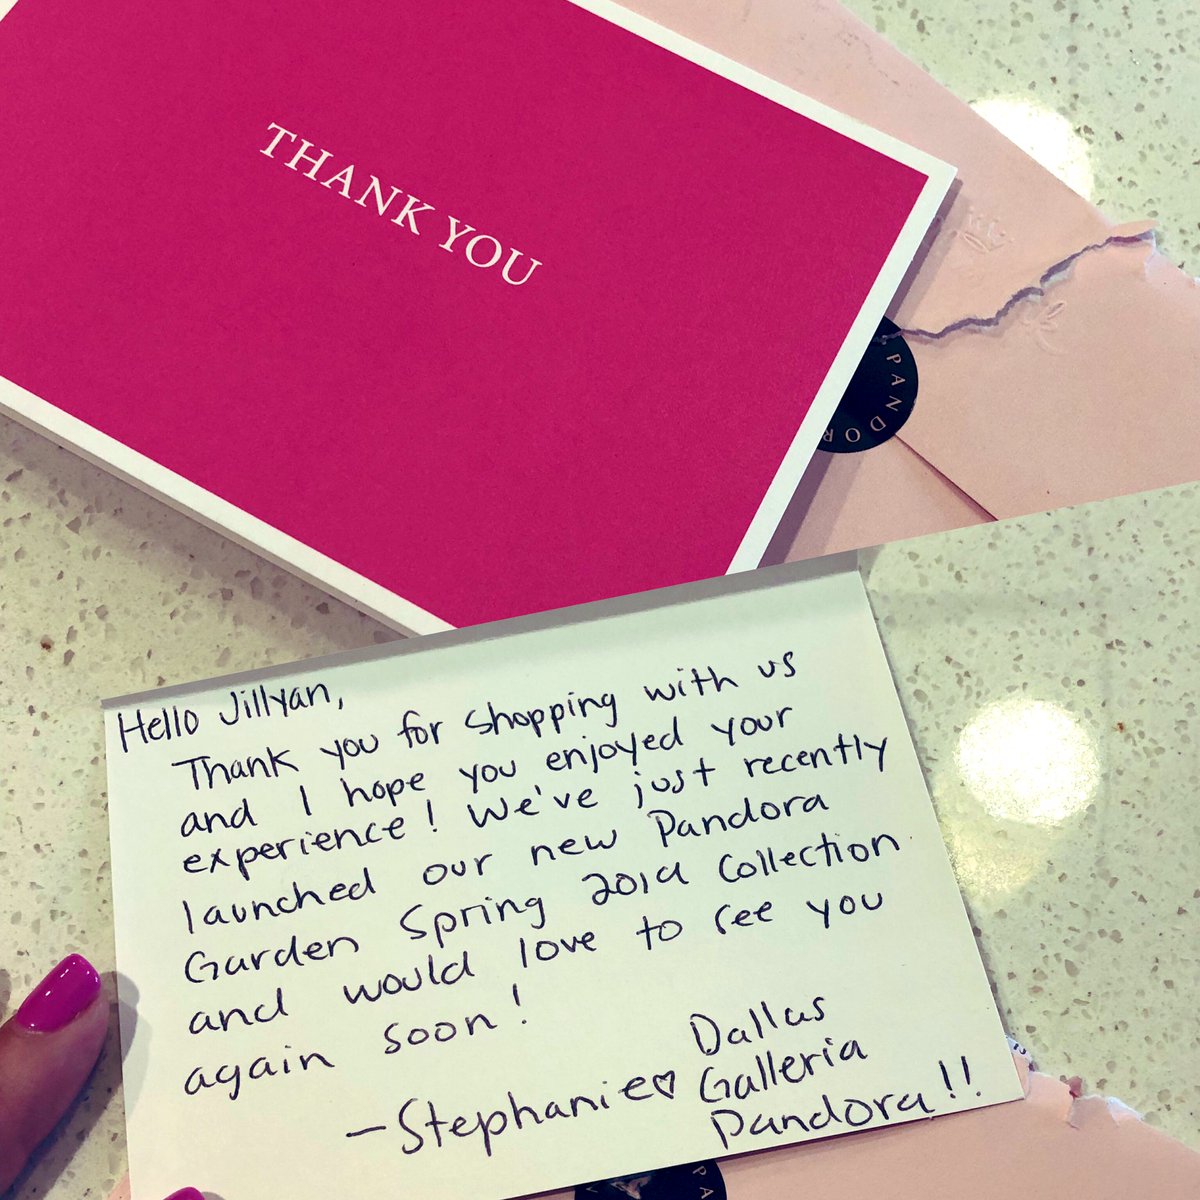 THANK YOU
PANDOR
Hello Jillyan,
Thank you for shopping with us
and I hope you enjoyed your
experience! We've just recently
launched our new Pandora
Garden Spring 2019 Collection
and would love to see you
again soon!
Dallas
-Stephanie♡ Galleria
Pandora!!
PA